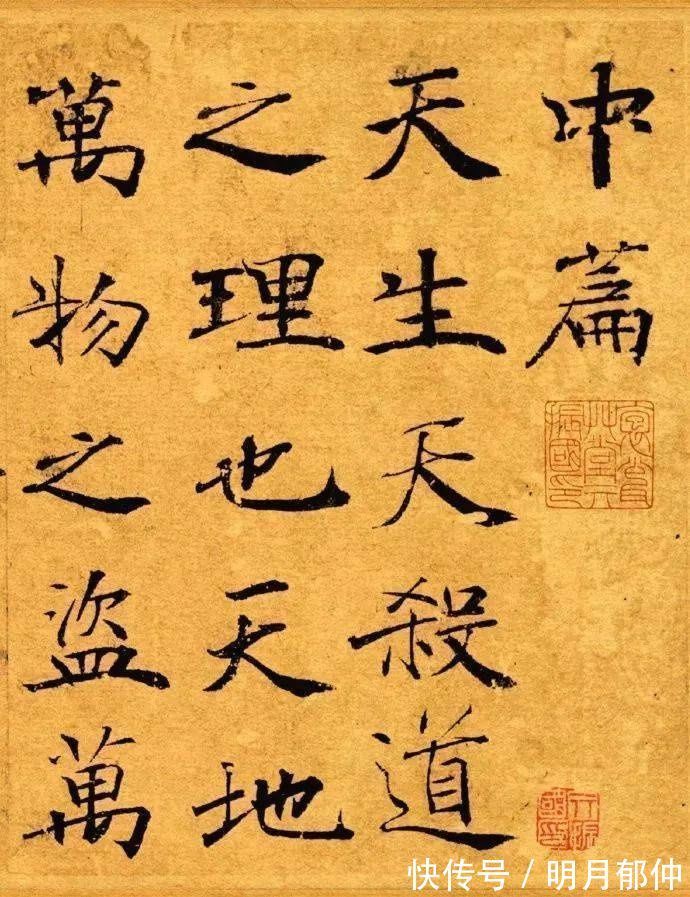 中篇
天生天殺道
之理也天地
萬物之盜萬
快传号 / 明月郁仲